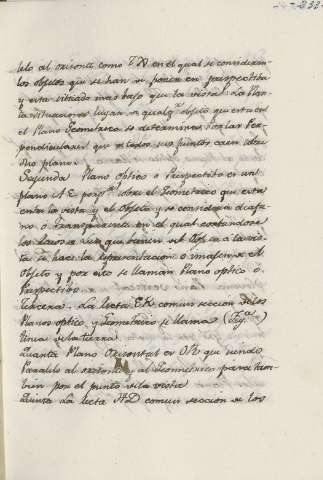 232
lelo al orisonte como TD en el qual se consideran
los objetos que se han de poner en perspectiba
y esta situado mas bajo que la vista. La Plan-
ta situacion o lugar de qualq.ª objeto que esta en
el Plano Geometrico se determina por las Per-
pendiculares que de todos sus puntos caen sobre
dho plano.
Segunda Plano optico o Perspectibo es un
plano sobre el Geometrico que esta
entre la vista y el objeto y se considera diafa-
no o transparente en el qual cortandose
los rayos que bienen del objeto a la vis-
ta se hace la representacion o imagen del
objeto y por esto se llaman Plano optico o
Perspectibo.
Tercera. La recta EK comun seccion de los
Planos optico, y Geometrico se llama (Fig.ª
linea de la tierra.
Quarta Plano Orisontal es OR que siendo
Paralelo al orizonte y al Geometrico pasa tam-
bien por el punto de la vista
Quinta La recta HD comun seccion de los